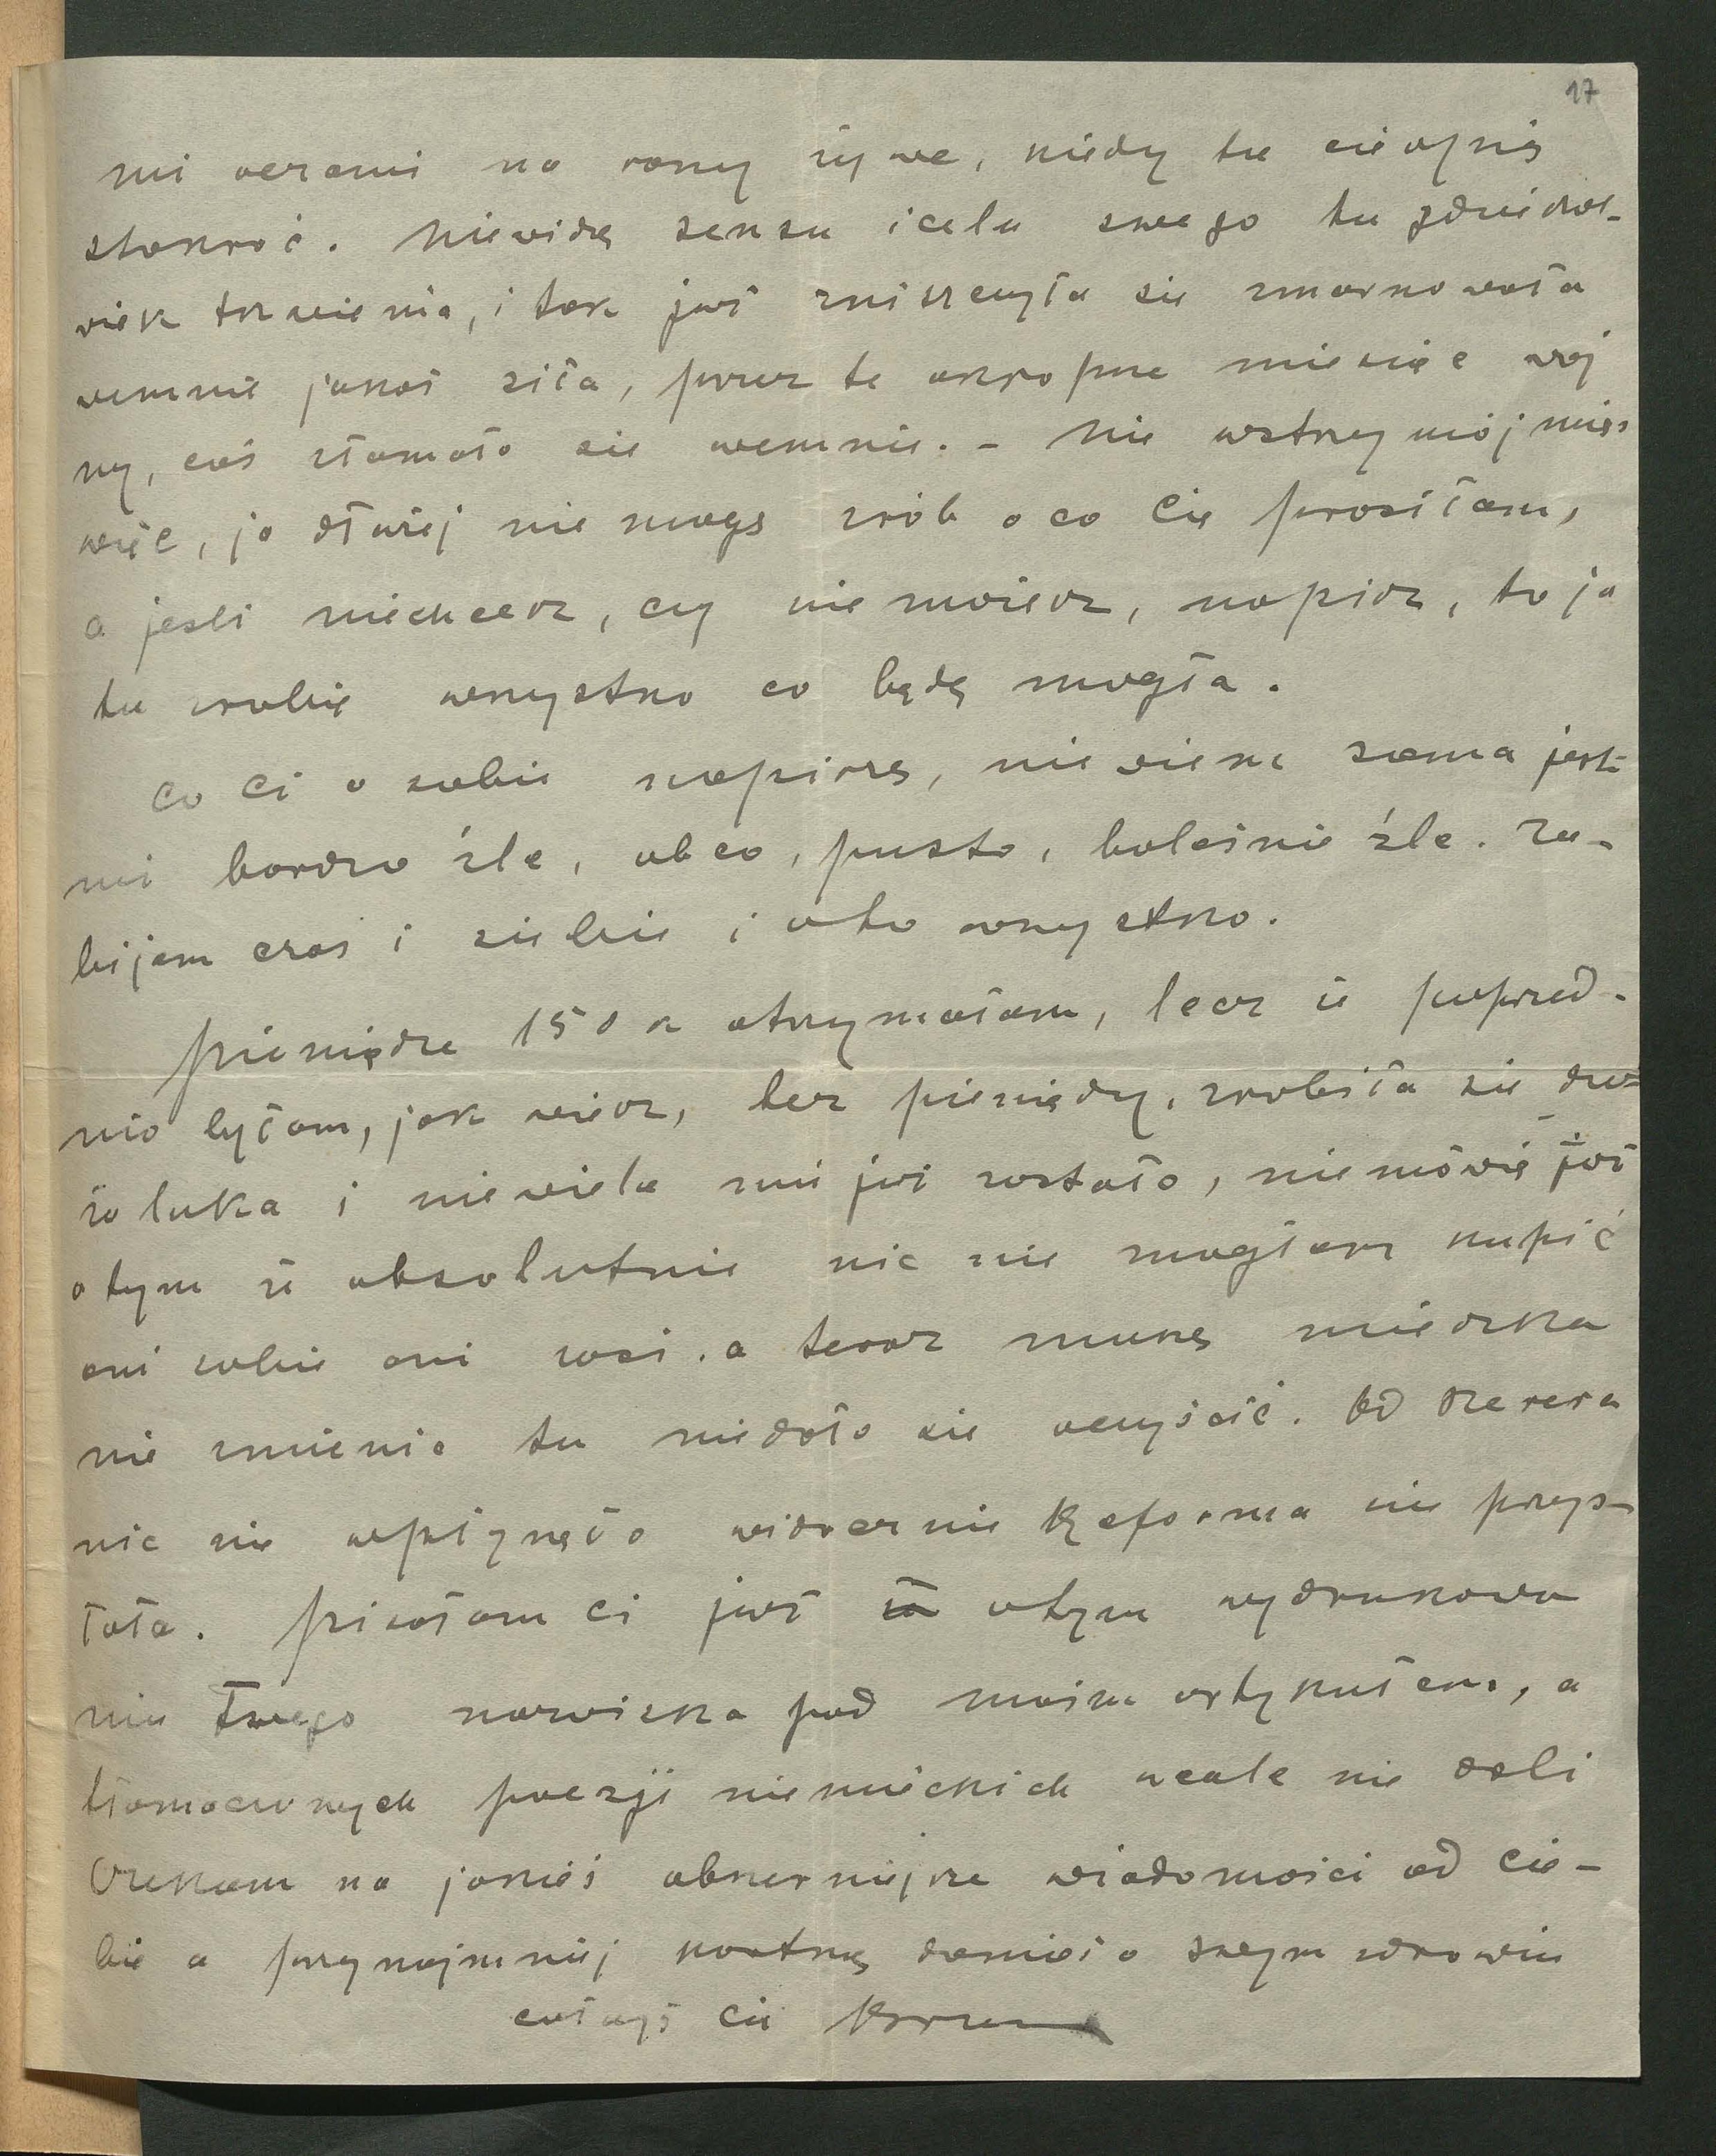 17
mi oczami na rany żywe, kiedy tu cierpię
stokroć. Niewidzę sensu i celu swego tu gdziekol-
wiek tkwienia, i tak już zniszczyła się zmarnowała
wemnie jakaś siła, przez te okropne miesiące woj
ny, coś złamało się wemnie. – Nie wstrzymój mię
więc, ja dłużej nie mogę zrób o co Cię prosiłam,
a jesli niechcesz, czy nie możesz, napisz, to ja
tu zrobię wszystko co będę mogła.
Co Ci o sobie napiszę, nie wiem sama jest
mi bardzo źle, obco, pusto, boleśnie źle. Za-
bijam czas i siebie i oto wszystko.
Pieniądze 150 k otrzymałam, lecz że poprzed-
nio byłam, jak wiesz, bez pieniędzy, zrobiła się du-
ża luka i niewiele mi już zostało, niemówię już
o tym że absolutnie nic nie mogłam kupić
ani sobie ani Zosi. a teraz muszę mieszka
nie zmienić tu niedało się oczyścić. Od
nic nie wpłynęło widocznie Reforma nie przys-
łała. Pisałam Ci już o tym wydrukowa
niu Twego nazwiska pod moim artykułem, a
tłomaczonych poezji niemieckich wcale nie dali
Czekam na jakieś obszerniejsze wiadomości od Cie-
bie a przynajmniej kartkę donieś o swym zdrowiu
całuję Cię